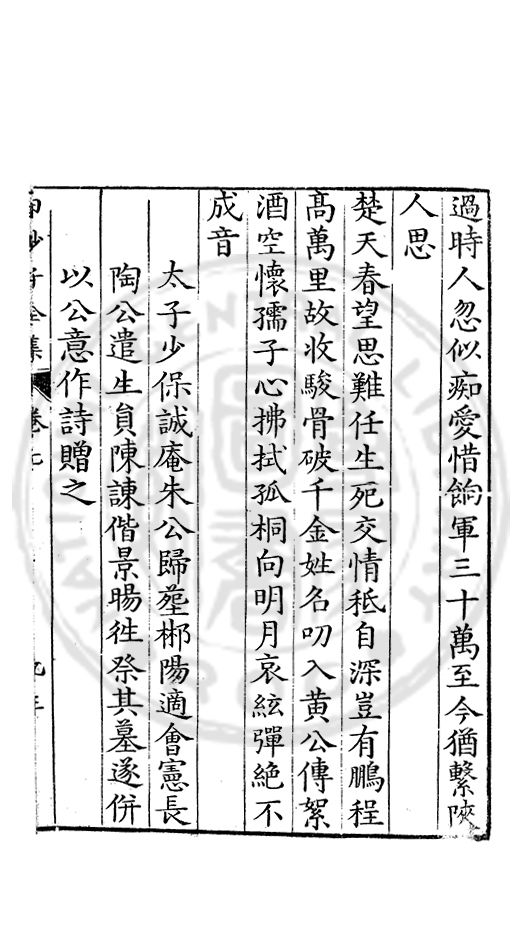 過時人忽似痴愛惜餉軍三十萬至今猶繫陝
人思
楚天春望思難任生死交情秪自深豈有鵬程
髙萬里故收駿骨破千金姓名叨入黃公傳絮
酒空懷孺子心拂拭孤桐向明月哀絃彈絶不
成音
太子少保誠庵朱公歸塟郴陽適會憲長
陶公遣生員陳諫偕景暘徃祭其墓遂併
以公意作詩贈之
白沙子全集 卷七